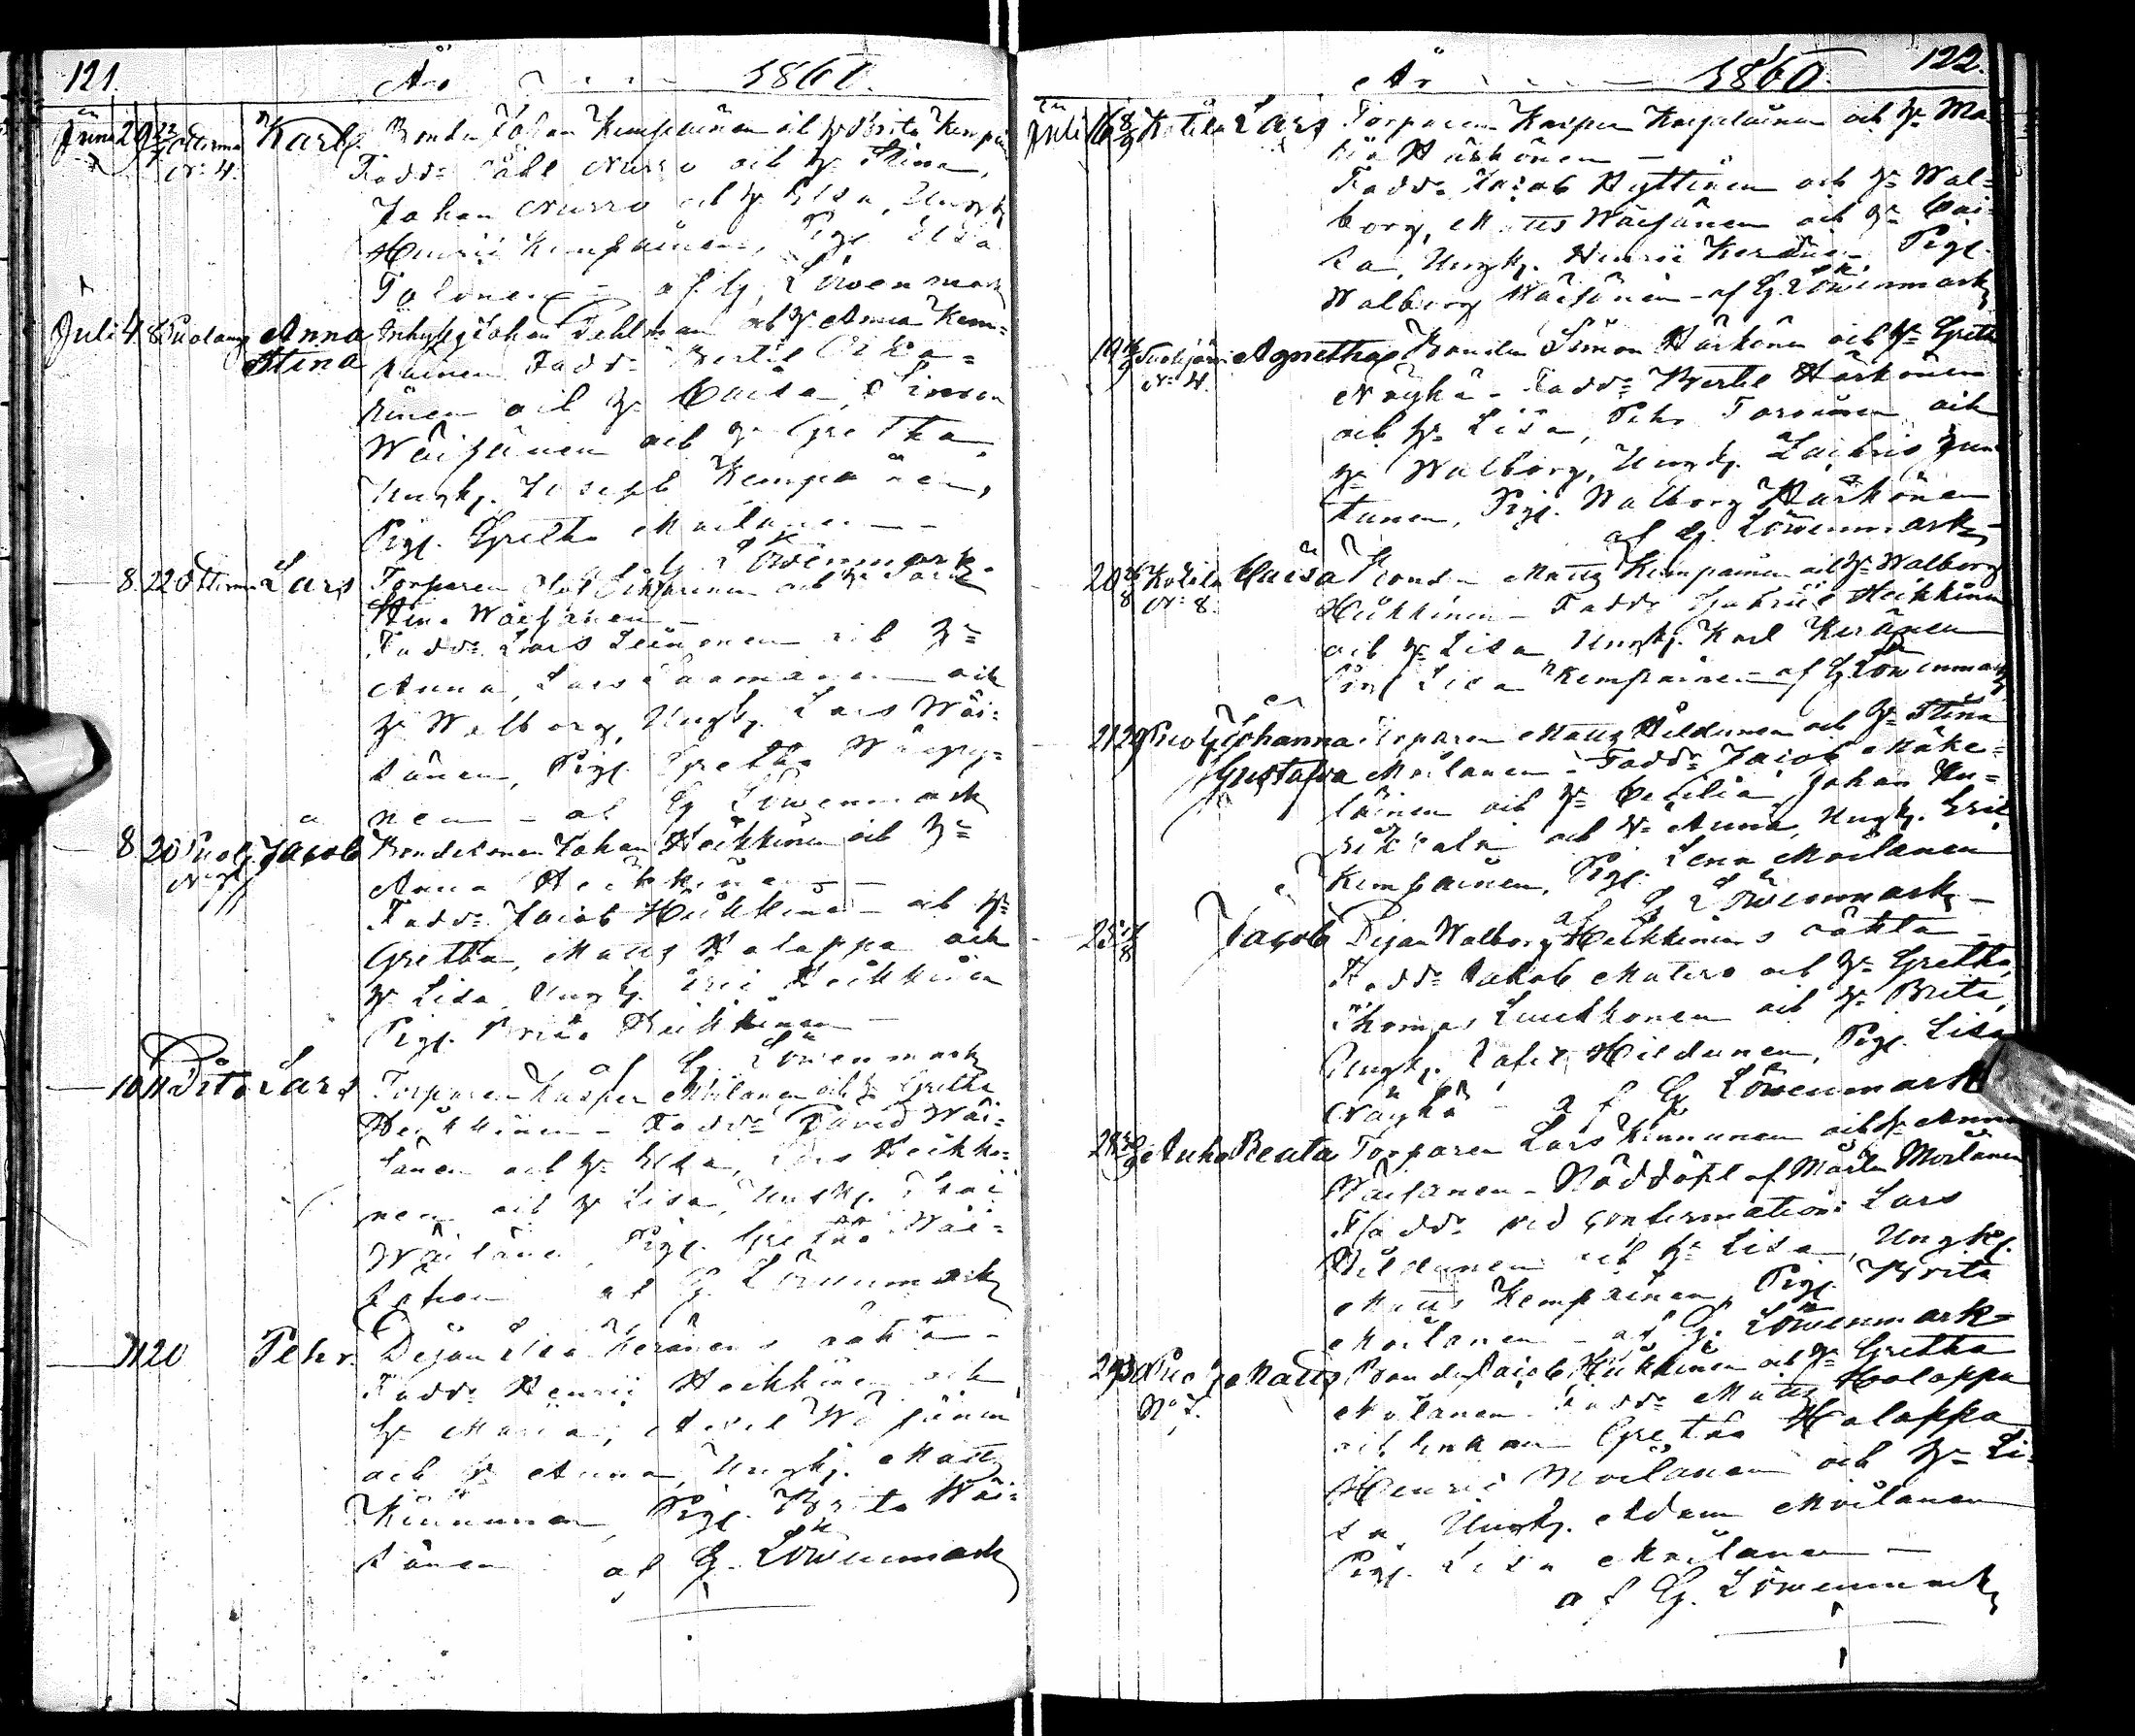 121.
År 1860.
Juni 29 22/7 Ottermo Karl. Bonden Johan Kempainen och h. Brita Kempai
N:4. Fadd: Påhl Nurro och h: Stina,
Johan Nurro och h. Elsa, Ungk.
Henric Kempainen, Pig. Elsa
Tolonen — af G. Löwenmark
Juli 4 8 Puolang Anna Inhyss. Johan Pehlman och h. Anna Kem=
Stina painen Fadd:
och h. Caisa, Simon
Wäisänen och h: Gretha,
Ungk. Joseph Kempainen,
Pig. Gretha Moilanen —
G. Löwenmark.
8. 22 Ottermo Lars Torparen Olof och h:
Stina Wäisänen —
Fadd: Lars Leinonen och h:
Anna, Lars och
h: Walborg, Ungk. Lars Wäi=
sänen, Pig. Gretha
nen — af G Löwenmark
8 20 Puol. Jacob Bondesonen Johan Heikkinen och h:
Anna Heikkinen —
Fadd: Jacob Heikkinen och h:
Gretha, Matts Holappa och
h: Lisa, Ungk. Eric Heikkinen
Pig. Brita Heikkinen —
af G. Löwenmark
10 11 Dito Lars Torparen Kasper Moilanen och h: Gretha
Heikkinen — Fadd: David Wäi=
sänen och h: Elsa, Lars Heikki=
nen och h: Lisa, Ungk. Isac
Wäisänen, Pig. Gretha Wäi=
sänen af G. Löwenmark
11 20 Pehr. Pigan Lisa Keränens oäkta —
Fadd: Henric Heikkinen och
h: Maria, Axel Wäisänen
och h: Anna, Ungk. Matts
Kinnunen, Pig. Brita Wäi=
sänen af G. Löwenmark
122.
År 1860.
Juli 16 Kotila Lars Torparen Kasper Karjalainen och h: Ma=
ria Härkönen —
Fadd: Jacob Hyttinen och h: Wal=
borg, Matts Wäisänen och h: Cai=
sa, Ungk. Henric Keränen Pig.
Walborg Wäisänen — af G. Löwenmark
19 Suolijärvi Agnetha Bonden Simon Härkönen och h: Greth
N:4. Näykä — Fadd: Bertil Härkönen
och h: Lisa, Pehr Toroinen och
h: Walborg, Ungk. Zachris Jun=
tunen, Pig. Walborg Härkönen
af G. Löwenmark
20 Kotila Caisa Bond: Matts Kempainen och h: Walborg
N:8. Heikkinen — Fadd: Gabriel Heikkinen
och h: Lisa Ungk. Karl Keränen
Pig. Lisa Kempainen — af G. Löwenmark
21 29 Puol. Johanna Torparen Matts Hildunen och h: Stina
Gustafva Moilanen — Fadd: Jacob Mäke=
läinen och h: Cecilia, Johan
och h: Anna, Ungk. Eric
Kempainen, Pig. Lena Moilanen
af G Löwenmark —
25 Jacob Pigan Walborg Heikkinens oäkta —
Fadd: Jakob Matero och h: Gretha,
Thomas Luukkonen och h: Brita,
Ungk. Hildunen, Pig. Lisa
Näykä — af G Löwenmark
28 Auho Beata Torparen Lars Kinnunen och h: Anna
Wäisänen — Nöddöpt af Mårten Moilanen
Fadd: vid confirmation: Lars
Hildunen och h: Lisa, Ungk.
Matts Kempainen, Pig. Brita
Moilanen — af G. Löwenmark
29 Puol. Matts Bonden Jacob Heikkinen och h: Gretha
N:o 7. Moilanen. Fadd: Matts Holappa
och Enkan Gretha Holappa
Henric Moilanen och h: Li=
sa, Ungk. Adam Moilanen
Pig. Lisa Moilanen —
af G. Löwenmark